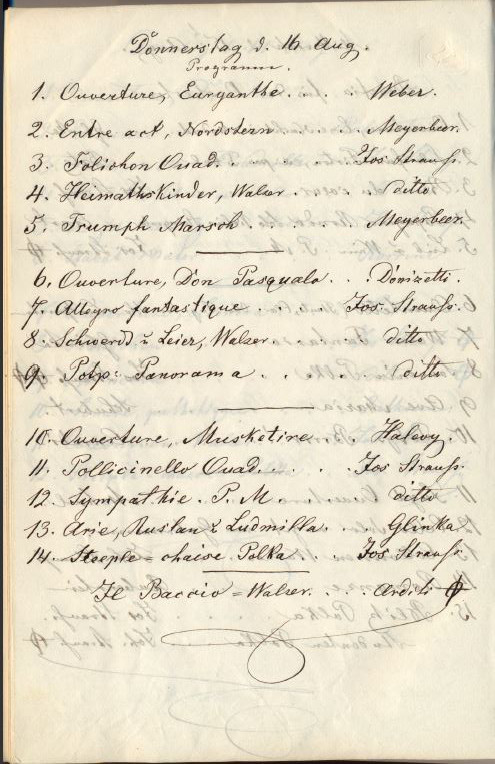 Donnerstag d. 16 Aug.
Programm.
1. Ouverture, Euryanthe . . . . Weber.
2. Entre act, Nordstern . . . Meyerbeer.
3. Folichon Quad. . . . Jos Strauss.
4. Heimathskinder, Walzer . . . ditto
5. Triumph Marsch . . . Meyerbeer.
6. Ouverture, Don Pasquale . . . Donizetti.
7. Allegro fantastique . . . Jos. Strauss.
8. Schwerdt u Leier, Walzer . . . ditto
9. Potp: Panorama . . . ditto
10. Ouverture, Musketire . . Halevy.
11. Pollicinello Quad. . . . Jos Strauss.
12. Sympathie . P. M . . . ditto
13. Arie, Ruslan & Ludmilla . . Glinka
14. Steeple = chaise Polka . . . Jos. Strauss.
Il Baccio = Walzer . . . . Arditi